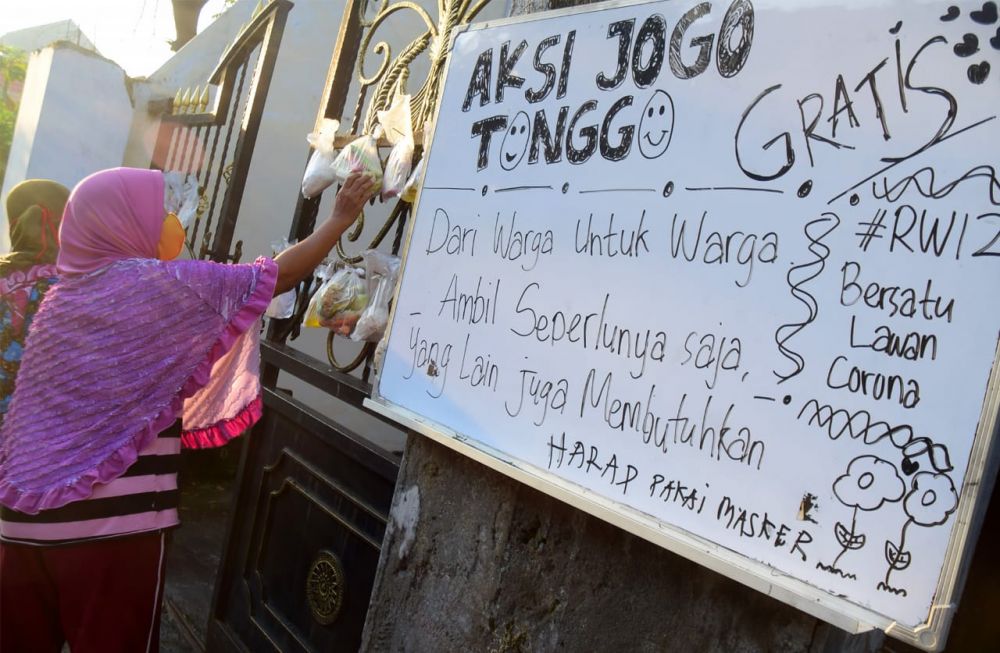 AKSI JOGO
TONGGO
GRATIS
Dari Warga Untuk Warga
Ambil Seperlunya saja,
Yang Lain juga Membutuhkan
HARAP PAKAI MASKER
#RW12
Bersatu
Lawan
Corona